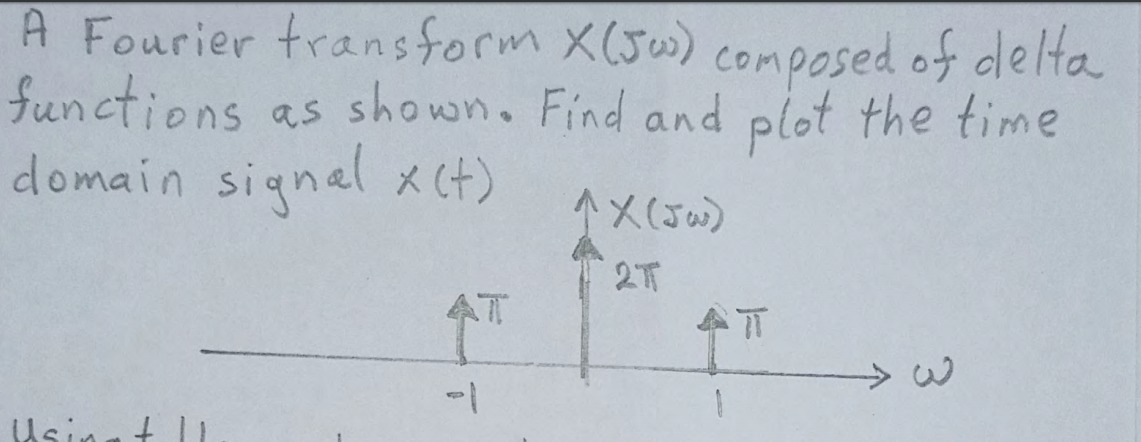 A Fourier transform X(jω) composed of delta
functions as shown. Find and plot the time
domain signal x(t)
X(jω)
2π
π
π
ω
-1
1